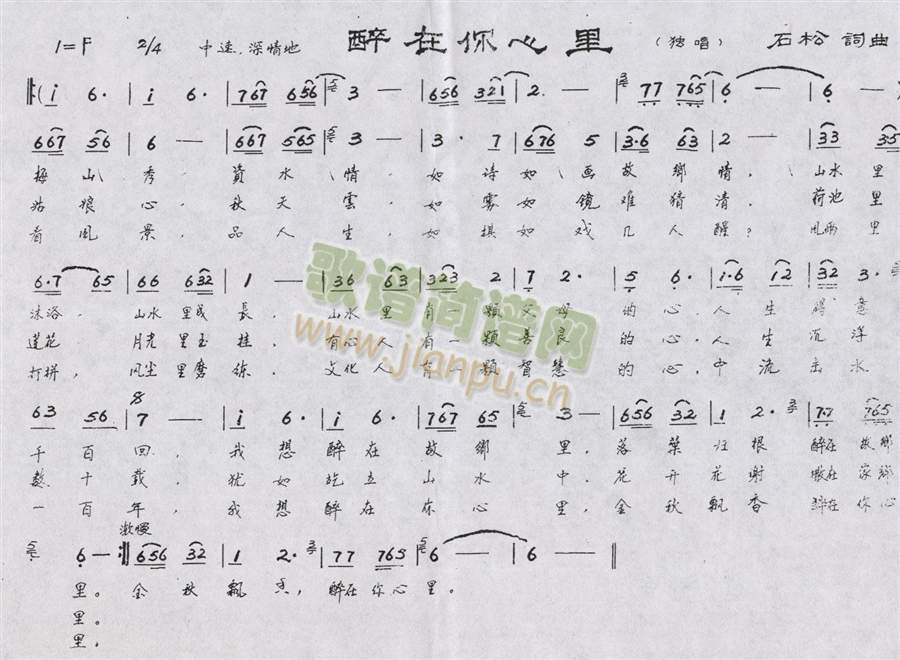 1=F 2/4 中速.深情地 醉在你心里 （独唱） 石松 詞曲
‖:( i 6· | i 6· | 767 656 | 3 — | 656 321 | 2· — | 77 765 | 6 — | 6 —
667 56 | 6 — | 667 565 | 3 — | 3· 7 | 676 5 | 3·6 63 | 2 — | 33 35
梅山秀，資水情，如詩如画故鄉情，山水里
姑娘心，秋天雲，如雾如镜难猜清，荷池里
看風景，品人生，如棋如戏几人醒？風雨里
6·7 65 | 66 632 | 1 — | 36 63 | 323 2 | 7 2· | 5 6· | 1·6 12 | 32 3·
沐浴，山水里成長，山水里有一顆 的心，人生得意
莲花，月光里玉挂，有心人有一顆善良的心，人生沉浮
打拼，風尘里磨练，文化人有一顆智慧的心，中流击水
63 56 | 7 — | i 6· | i 6· | 767 65 | 3 — | 656 32 | 1 2· | 77 765
8
千百回，我想醉在故鄉里，落葉归根醉在故鄉
数十载，犹如屹立山水中，花开花谢 在家鄉
一百年，我想醉在你心里，金秋飄香醉在你心
渐慢
6 — :‖ 656 32 | 1 2· | 77 765 | 6 — | 6 — ‖
里。金秋飄香，醉在你心里。
里。
里，
歌谱简谱网
www.jianpu.cn